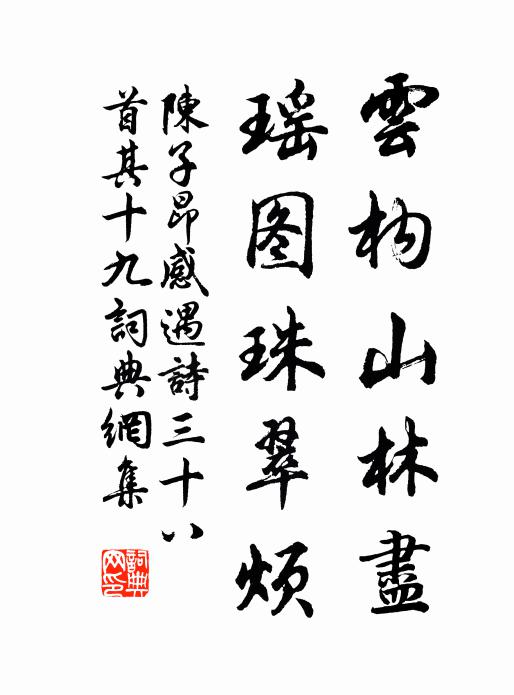 雲构山林盡
瑶图珠翠煩
陳子昂感遇詩三十八
首其十九詞典網集
詞典网印